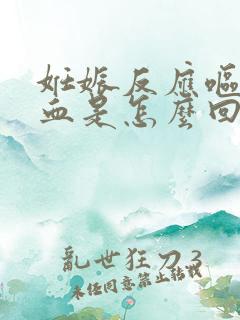 妊娠反應嘔
血是怎麼回
亂世狂刀3
未经同意禁止转载